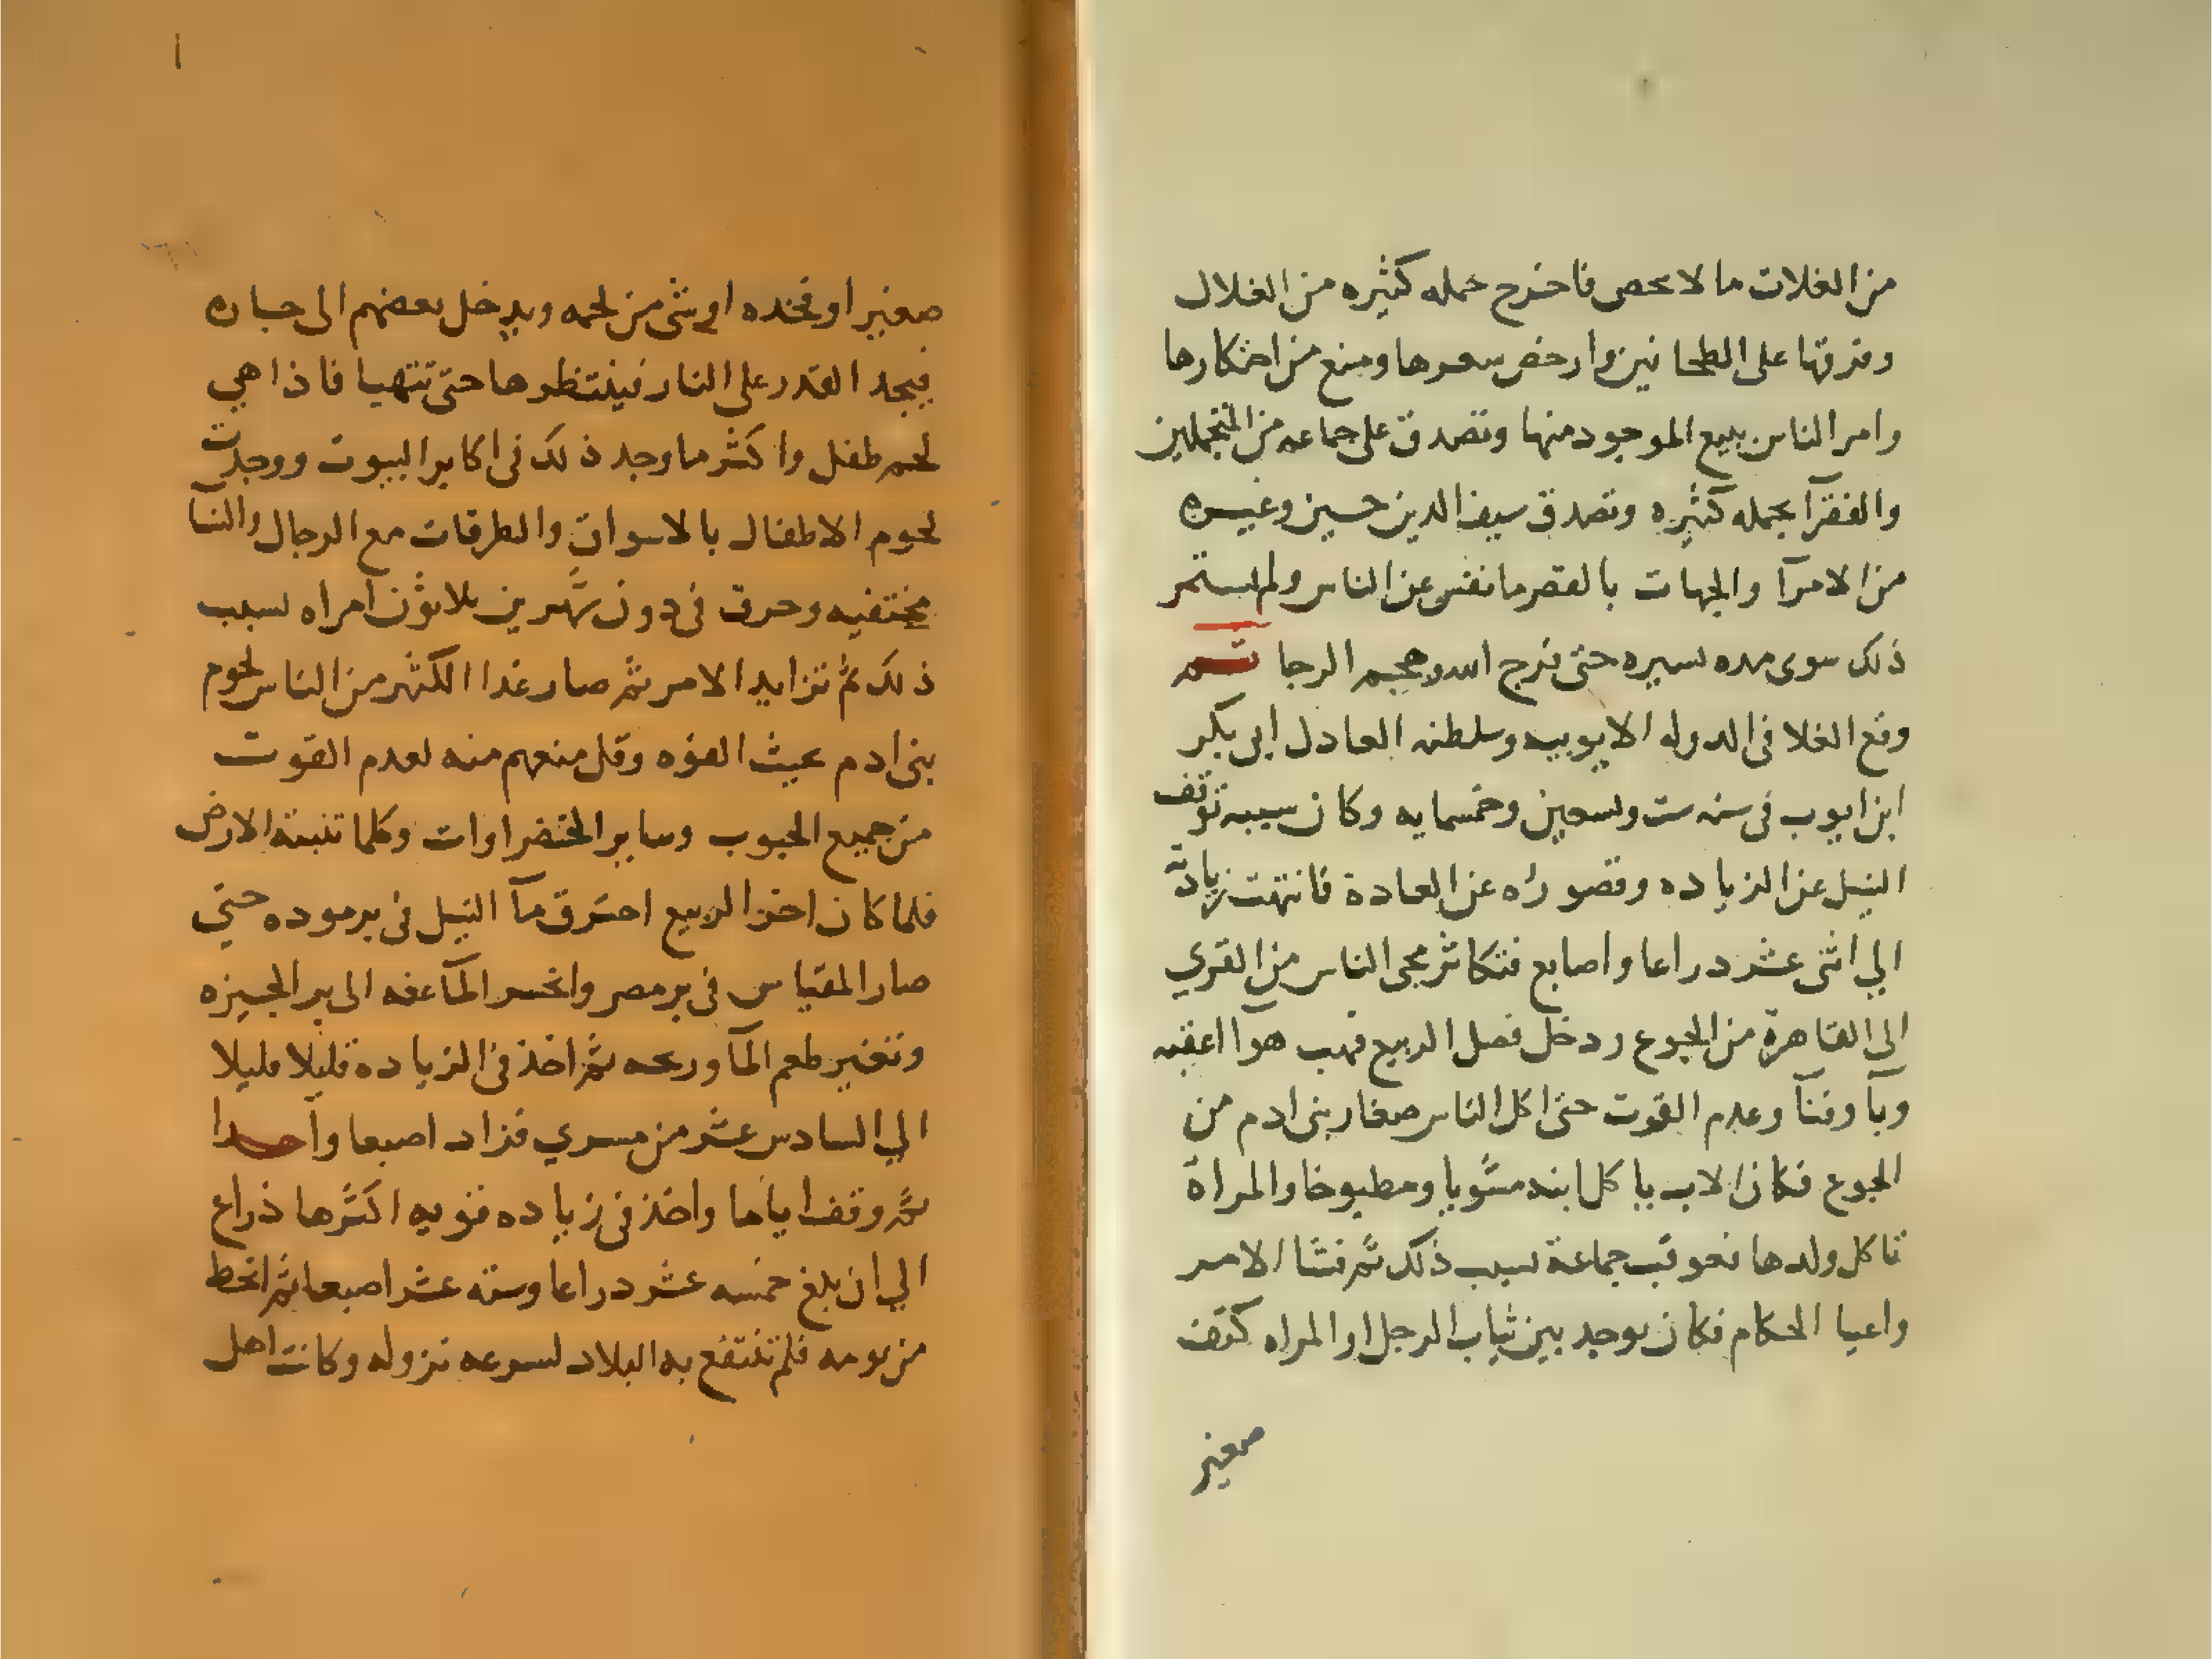 من الغلات ما لا يحصى فاخرج جمله كثيره من الغلال
وفرقها على الطحانين وارخص سعرها ومنع من احتكارها
وامر الناس ببيع الموجود منها وتصدق على جماعه من المتجملين
والفقرآ بجمله كثيره وتصدق سيف الدين حسين وغيره
من الامرآ والجهات بالقصر ما نفس عن الناس ولم يستمر
ذلك سوى مده يسيره حتى فرج الله وهجم الرجا ثم
وقع الغلا فى الدوله الايوبيه وسلطنه العادل ابى بكر
ابن ايوب فى سنه ست وتسعين وخمسمايه وكان سببه توقف
النيل عن الزياده وقصوراه عن العادة فانتهت زيادته
الي اثنى عشر دراعا واصابع فتكاثر مجى الناس من القري
الى القاهرة من الجوع ودخل فصل الربيع فهب هوآ اعقبه
وبآ وفنآ وعدم القوت حتى اكل الناس صغار بنى ادم من
الجوع فكان الاب ياكل ابنه مشويا ومطبوخا والمراة
تاكل ولدها فعوقب جماعة بسبب ذلك ثم فشا الامر
واعيا الحكام فكان يوجد بين ثياب الرجل او المراه كتف
صغير
صغير او فخده او شى من لحمه ويدخل بعضهم الى جاره
فيجد القدر على النار فينتظرها حتى تتهيا فاذا هي
لحم طفل واكثر ما وجد ذلك فى اكابر البيوت ووجدت
لحوم الاطفال بالاسواق والطرقات مع الرجال والنسآ
مختفيه وحرق فى دون شهرين ثلاثون امراه بسبب
ذلك ثم تزايد الامر ثم صار غدا الكثير من الناس لحوم
بنى ادم بحيث الفوه وقل منعهم منه لعدم القوت
من جميع الحبوب وساير الخضراوات وكلما تنبته الارض
فلما كان اخر الربيع احترق مآ النيل فى برموده حتي
صار المقياس فى بر مصر وانحسر المآ عنه الى بر الجيزه
وتغير طعم المآ وريحه ثم اخذ فى الزيادة قليلا قليلا
الي السادس عشر من مسري فزاد اصبعا واحدا
ثم وقف اياما واخذ فى زياده قويه اكثرها ذراع
الي ان بلغ خمسه عشر دراعا وسته عشر اصبعا ثم انحط
من يومه فلم تنتفع به البلاد لسرعه نزوله وكانت اهل